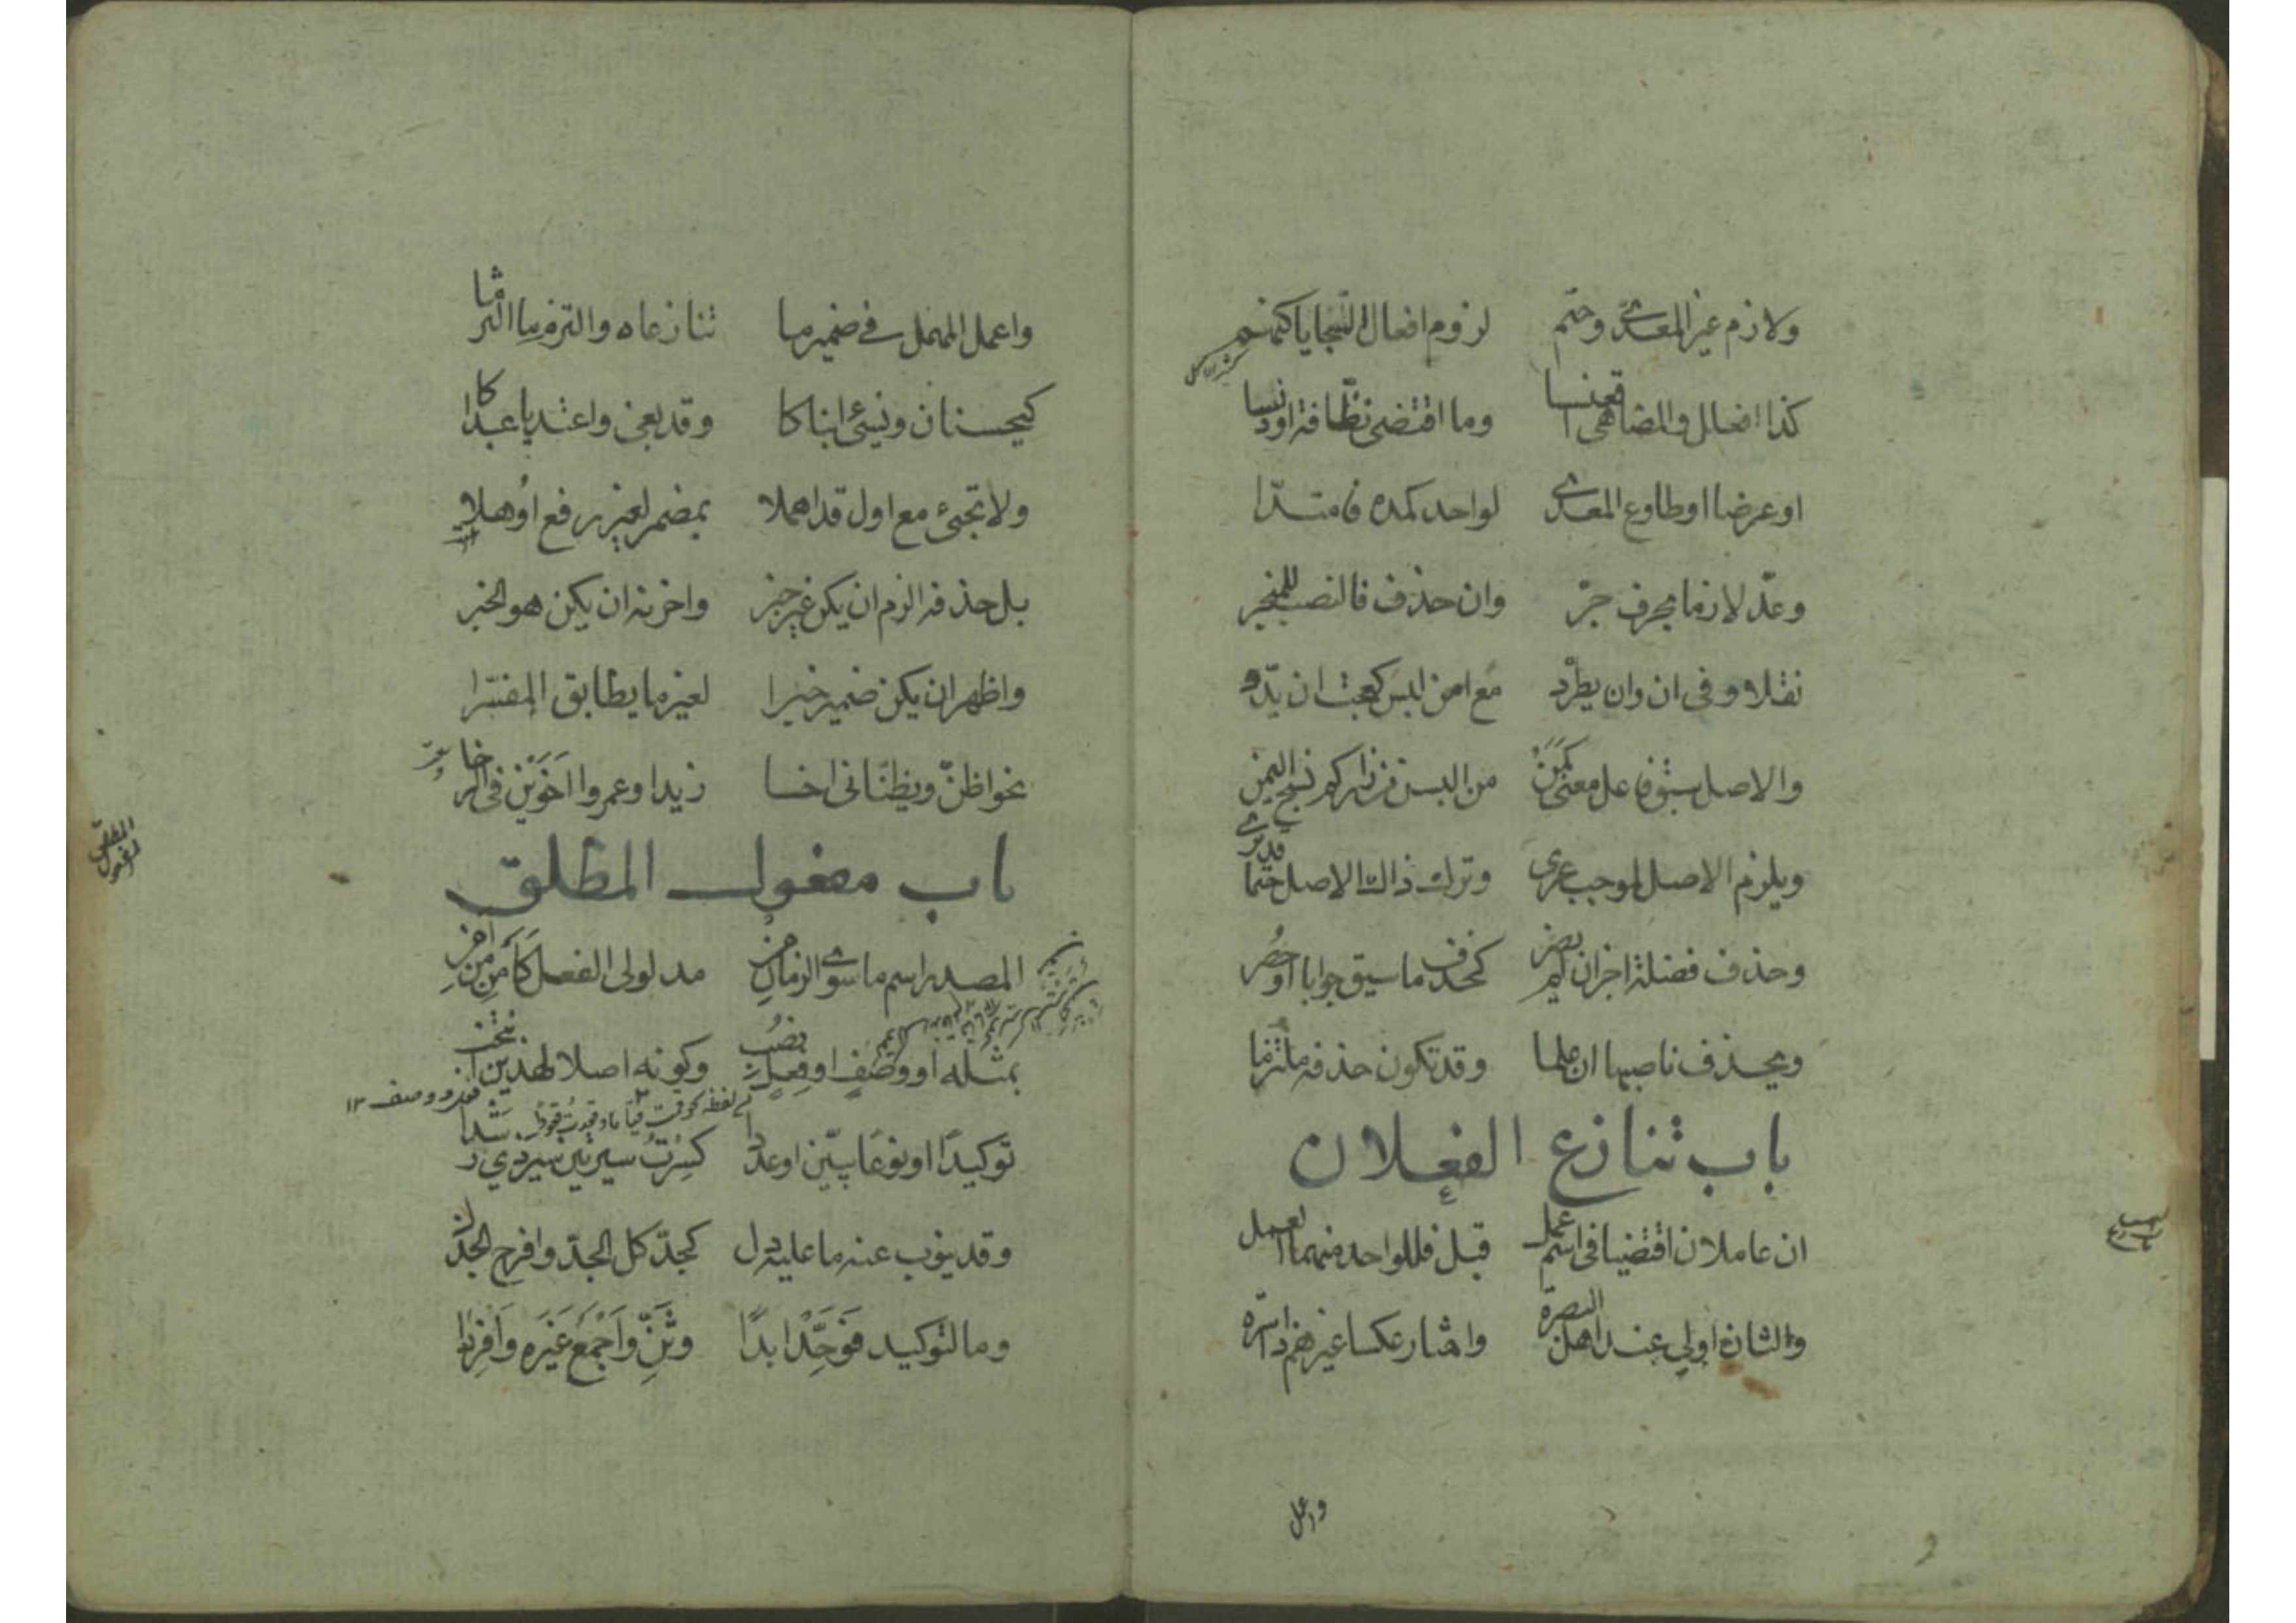 ولازم غير المعدى وحتم لزوم افعال السجايا كنهم
كذا افعلل والمضاهى اقعنسسا وما اقتضى نظافة او دنسا
او عرضا او طاوع المعدى لواحد كمده فامتدا
وعدّ لازما بحرف جرّ وان حذف فالنصب للمنجر
نقلا وفى ان وان يطرد مع امن لبس كعجبت ان يدو
والاصل سبق فاعل معنى كمن من البسن من زاركم نسج اليمن
ويلزم الاصل لموجب عرى وترك ذاك الاصل حتما قد يرى
وحذف فضلة اجز ان لم يضر كحذف ما سيق جوابا او حصر
ويحذف ناصبها ان علما وقد تكون حذفه ملتزما
باب تنازع الفعلان
ان عاملان اقتضيا فى اسم عمل قبل فللواحد منهما العمل
والثان اولى عند اهل البصرة واختار عكسا غيرهم ذا اسره
واعمل
واعمل المهمل فى ضمير ما تنازعاه والتزم ما التزما
كيحسنان ويسئ ابناكا وقد بغى واعتديا عبداكا
ولا تجئ مع اول قد اهملا بمضمر لغير رفع اوهلا
بل حذفه الزم ان يكن غير خبر واخرنه ان يكن هو الخبر
واظهر ان يكن ضمير خبرا لغير ما يطابق المفسرا
نحو اظنّ ويظنّانى اخا زيدا وعمروا اخوين فى الرخا
باب مفعول المطلق
المصدر اسم ما سوى الزمان من مدلولى الفعل كأمن من أمن
بمثله او وصف او فعل نصب وكونه اصلا لهذين انتخب
توكيدًا او نوعًا يبيّن او عدد كسرت سيرتين سير ذي رشد
وقد ينوب عنه ما عليه دل كجدّ كل الجدّ وافرح الجذل
وما لتوكيد فوحّد ابدًا وثنّ واجمع غيره وافردا